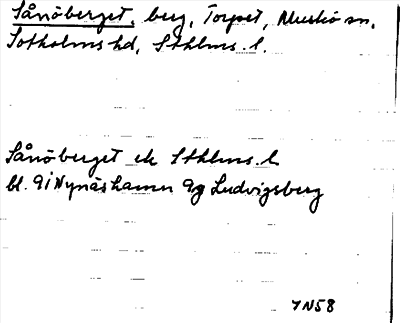 Sånöberget, berg, Torpet, Muskö sn,
Sotholms hd, Sthlms. l.
Sånöberget ek Sthlms. l.
bl. 9i Nynäshamn 9g Ludvigsberg
7N58